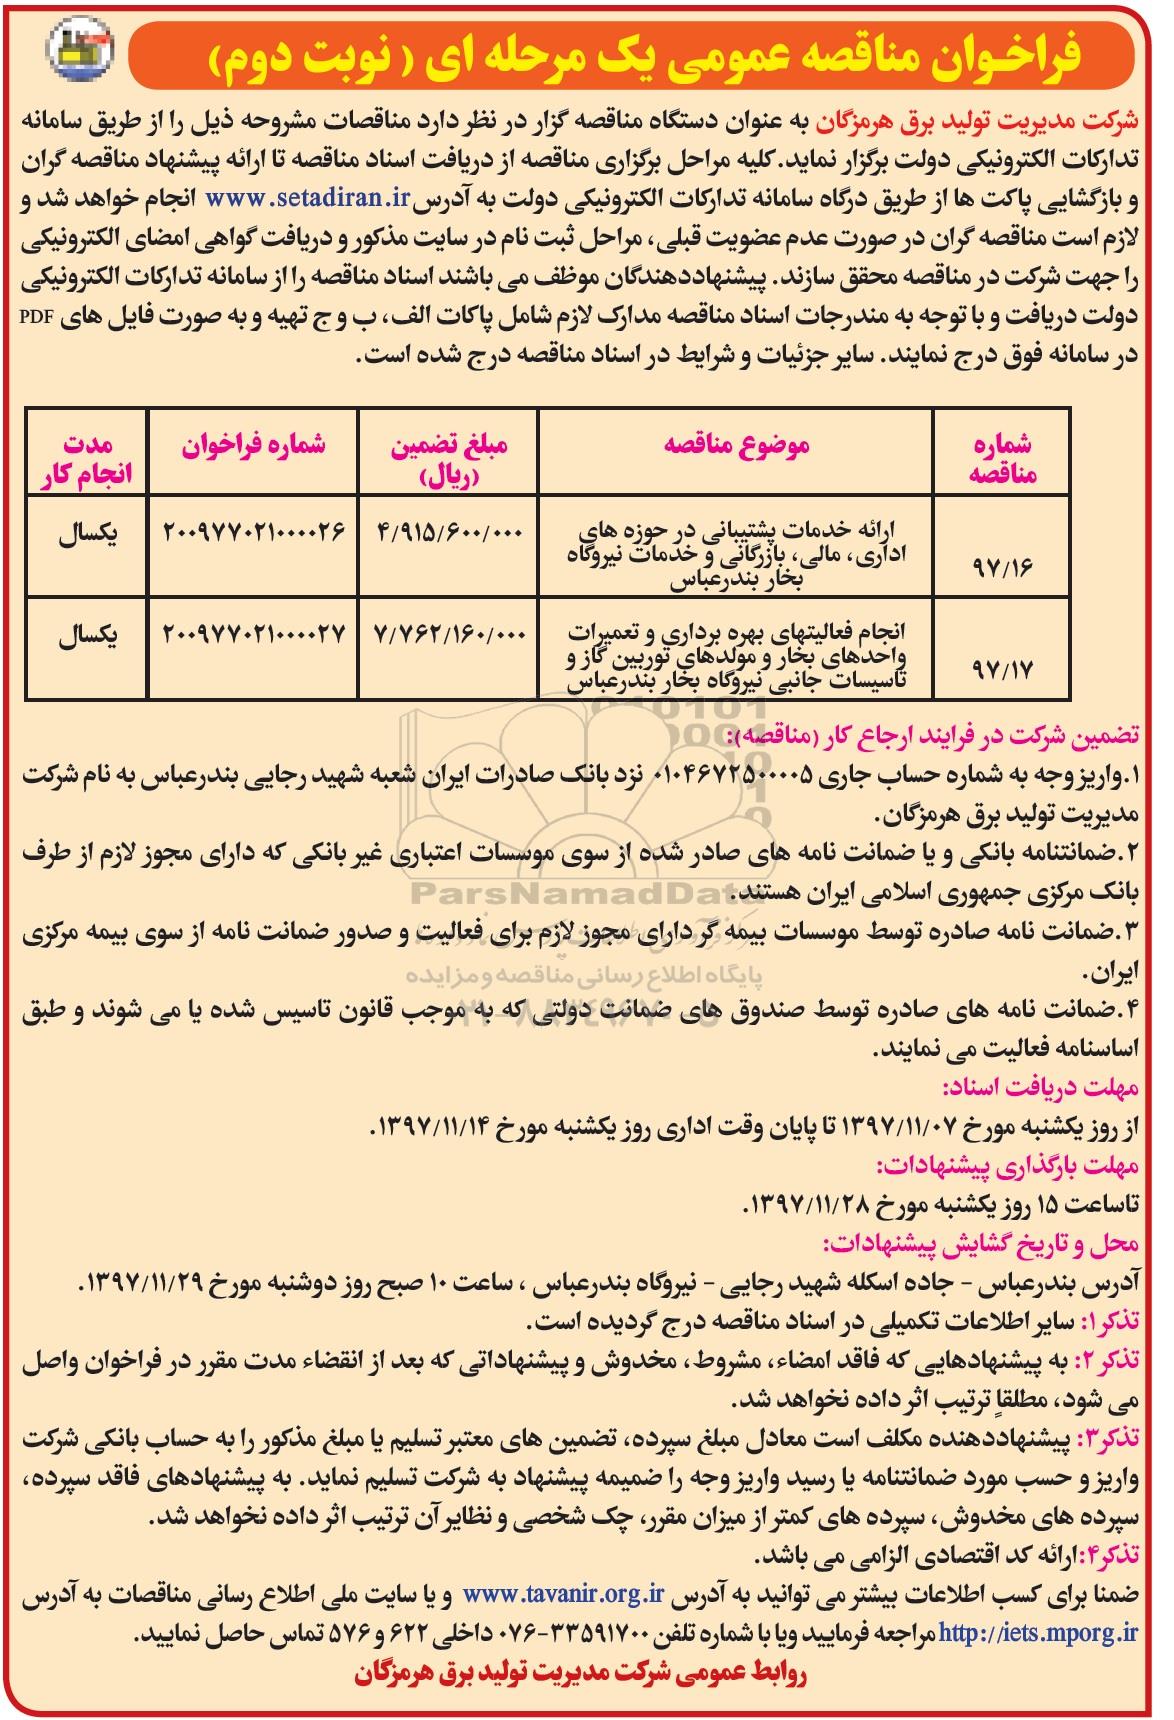 فراخوان مناقصه عمومی یک مرحله ای ( نوبت دوم)
شرکت مدیریت تولید برق هرمزگان به عنوان دستگاه مناقصه گزار در نظر دارد مناقصات مشروحه ذیل را از طریق سامانه
تدارکات الکترونیکی دولت برگزار نماید.کلیه مراحل برگزاری مناقصه از دریافت اسناد مناقصه تا ارائه پیشنهاد مناقصه گران
و بازگشایی پاکت ها از طریق درگاه سامانه تدارکات الکترونیکی دولت به آدرس www.setadiran.ir انجام خواهد شد و
لازم است مناقصه گران در صورت عدم عضویت قبلی، مراحل ثبت نام در سایت مذکور و دریافت گواهی امضای الکترونیکی
را جهت شرکت در مناقصه محقق سازند. پیشنهاددهندگان موظف می باشند اسناد مناقصه را از سامانه تدارکات الکترونیکی
دولت دریافت و با توجه به مندرجات اسناد مناقصه مدارک لازم شامل پاکات الف، ب و ج تهیه و به صورت فایل های PDF
در سامانه فوق درج نمایند. سایر جزئیات و شرایط در اسناد مناقصه درج شده است.
شماره مناقصه | موضوع مناقصه | مبلغ تضمین (ریال) | شماره فراخوان | مدت انجام کار
۹۷/۱۶ | ارائه خدمات پشتیبانی در حوزه های اداری، مالی، بازرگانی و خدمات نیروگاه بخار بندرعباس | ۴/۹۱۵/۶۰۰/۰۰۰ | ۲۰۰۹۷۷۰۲۱۰۰۰۰۲۶ | یکسال
۹۷/۱۷ | انجام فعالیتهای بهره برداری و تعمیرات واحدهای بخار و مولدهای توربین گاز و تاسیسات جانبی نیروگاه بخار بندرعباس | ۷/۷۶۲/۱۶۰/۰۰۰ | ۲۰۰۹۷۷۰۲۱۰۰۰۰۲۷ | یکسال
تضمین شرکت در فرایند ارجاع کار (مناقصه):
۱.واریز وجه به شماره حساب جاری ۰۱۰۴۶۷۲۵۰۰۰۰۵ نزد بانک صادرات ایران شعبه شهید رجایی بندرعباس به نام شرکت
مدیریت تولید برق هرمزگان.
۲.ضمانتنامه بانکی و یا ضمانت نامه های صادر شده از سوی موسسات اعتباری غیر بانکی که دارای مجوز لازم از طرف
بانک مرکزی جمهوری اسلامی ایران هستند.
ParsNamadData
۳.ضمانت نامه صادره توسط موسسات بیمه گر دارای مجوز لازم برای فعالیت و صدور ضمانت نامه از سوی بیمه مرکزی
ایران.
پایگاه اطلاع رسانی مناقصه و مزایده
۴.ضمانت نامه های صادره توسط صندوق های ضمانت دولتی که به موجب قانون تاسیس شده یا می شوند و طبق
اساسنامه فعالیت می نمایند.
مهلت دریافت اسناد:
از روز یکشنبه مورخ ۱۳۹۷/۱۱/۰۷ تا پایان وقت اداری روز یکشنبه مورخ ۱۳۹۷/۱۱/۱۴.
مهلت بارگذاری پیشنهادات:
تاساعت ۱۵ روز یکشنبه مورخ ۱۳۹۷/۱۱/۲۸.
محل و تاریخ گشایش پیشنهادات:
آدرس بندرعباس - جاده اسکله شهید رجایی - نیروگاه بندرعباس ، ساعت ۱۰ صبح روز دوشنبه مورخ ۱۳۹۷/۱۱/۲۹.
تذکر۱: سایر اطلاعات تکمیلی در اسناد مناقصه درج گردیده است.
تذکر ۲: به پیشنهادهایی که فاقد امضاء، مشروط، مخدوش و پیشنهاداتی که بعد از انقضاء مدت مقرر در فراخوان واصل
می شود، مطلقاٍ ترتیب اثر داده نخواهد شد.
تذکر۳: پیشنهاددهنده مکلف است معادل مبلغ سپرده، تضمین های معتبر تسلیم یا مبلغ مذکور را به حساب بانکی شرکت
واریز و حسب مورد ضمانتنامه یا رسید واریز وجه را ضمیمه پیشنهاد به شرکت تسلیم نماید. به پیشنهادهای فاقد سپرده،
سپرده های مخدوش، سپرده های کمتر از میزان مقرر، چک شخصی و نظایر آن ترتیب اثر داده نخواهد شد.
تذکر۴:ارائه کد اقتصادی الزامی می باشد.
ضمنا برای کسب اطلاعات بیشتر می توانید به آدرس www.tavanir.org.ir و یا سایت ملی اطلاع رسانی مناقصات به آدرس
http://iets.mporg.ir مراجعه فرمایید ویا با شماره تلفن ۳۳۵۹۱۷۰۰-۰۷۶ داخلی ۶۲۲ و ۵۷۶ تماس حاصل نمایید.
روابط عمومی شرکت مدیریت تولید برق هرمزگان